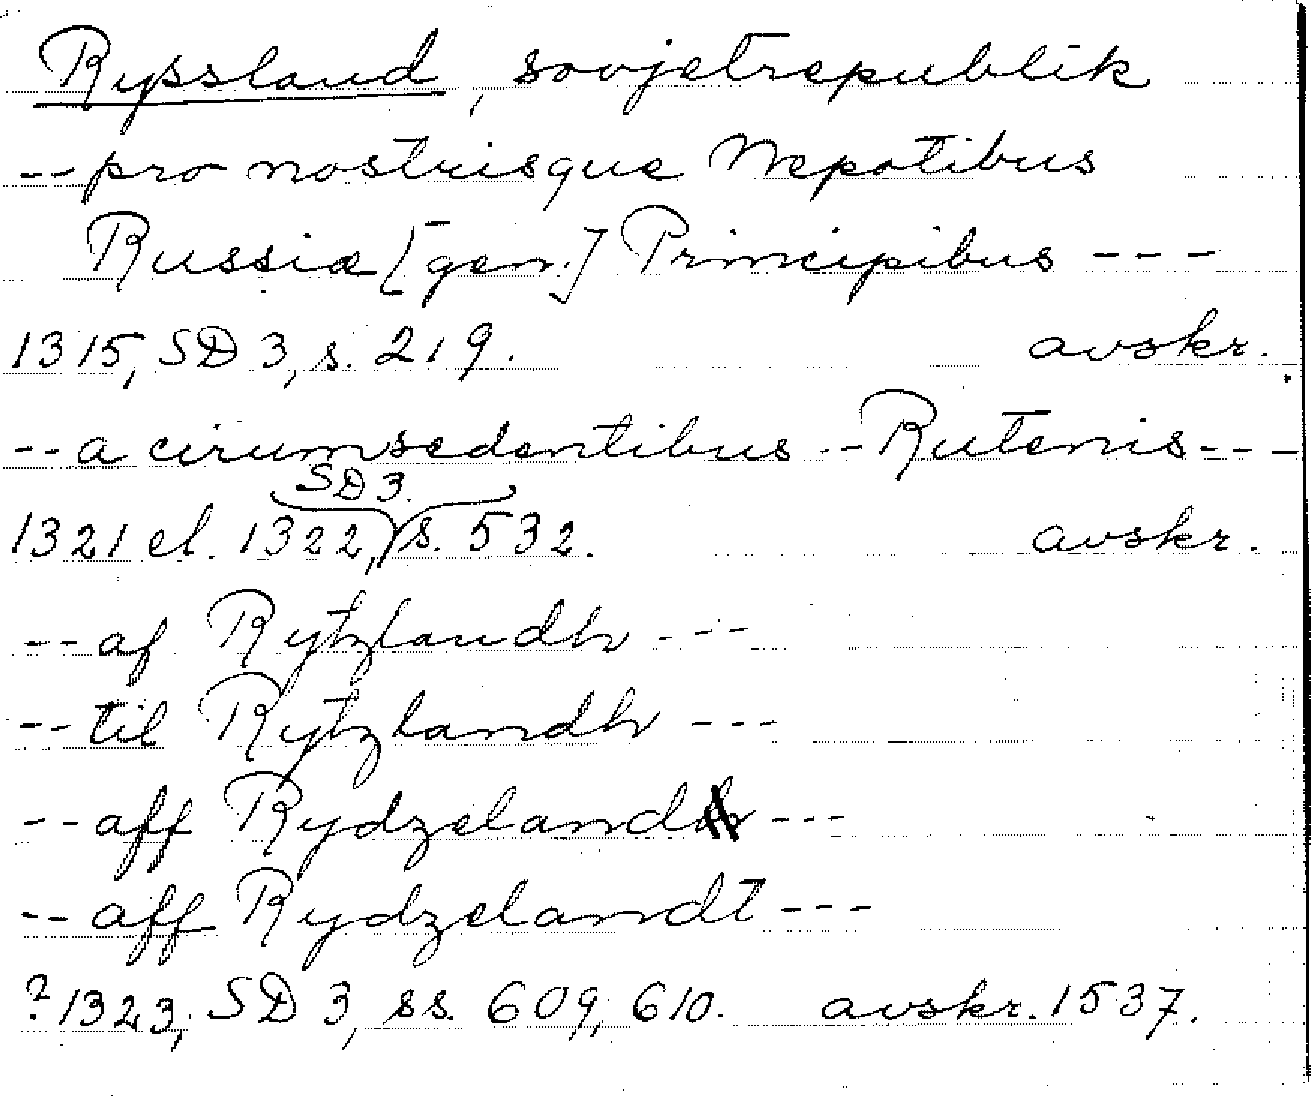 Ryssland, sovjetrepublik
--pro nostrisque Nepotibus
Russiæ [gen.] Principibus ---
1315, SD 3, s. 219. avskr.
--a cirumsedentibus --Rutenis---
SD 3.
1321 el. 1322, s. 532. avskr.
--af Rytzlandh ---
--til Rytzlandh ---
--aff Rydzelandh ---
--aff Rydzelandt ---
?1323, SD 3, ss. 609, 610. avskr. 1537.